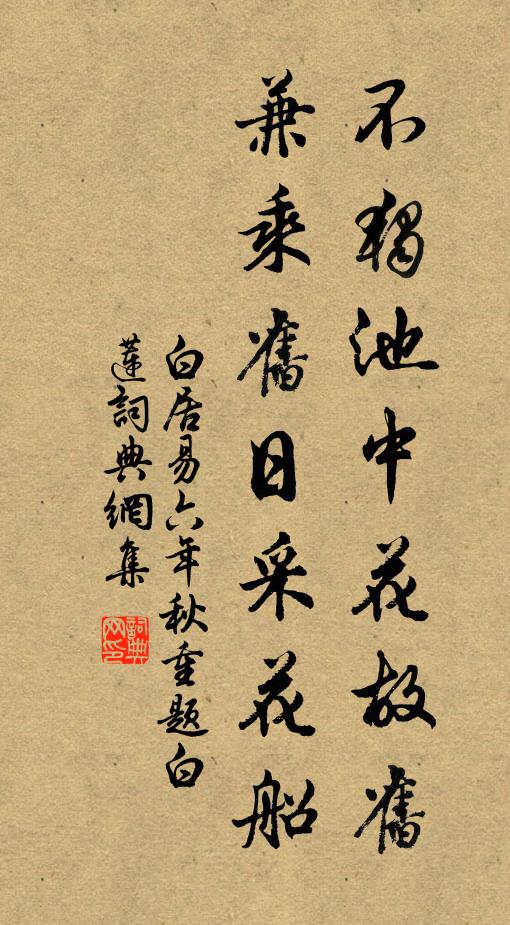 不獨池中花故舊
兼乘舊日采花船
白居易六年秋重題白
蓮詞典網集
詞典網印